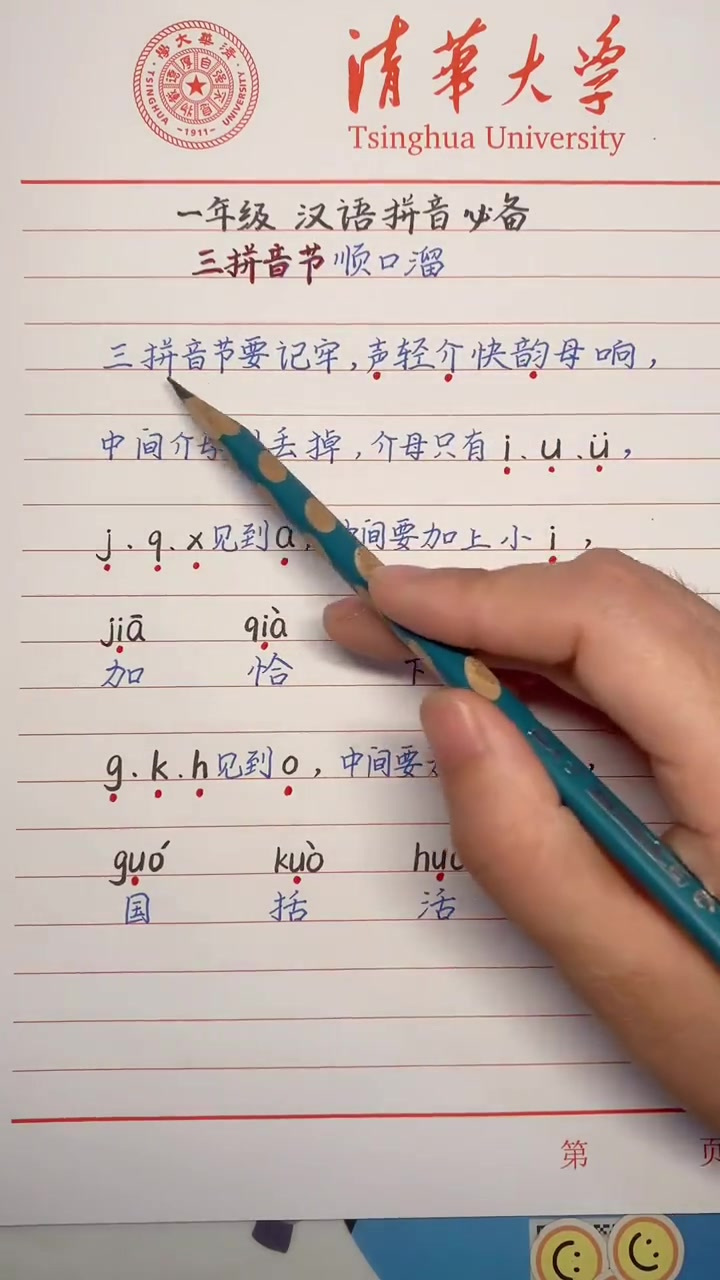 清華大学
Tsinghua University
TSINGHUA UNIVERSITY
清華大學
自强不息
厚德載物
-1911-
一年级 汉语拼音必备
三拼音节顺口溜
三拼音节要记牢,声轻介快韵母响,
中间介 丢掉,介母只有i.u.ü,
j.q.x见到a, 间要加上小i,
jiā qià
加 恰 下
g.k.h见到o,中间要
guó kuò hu
国 括 活
第 页